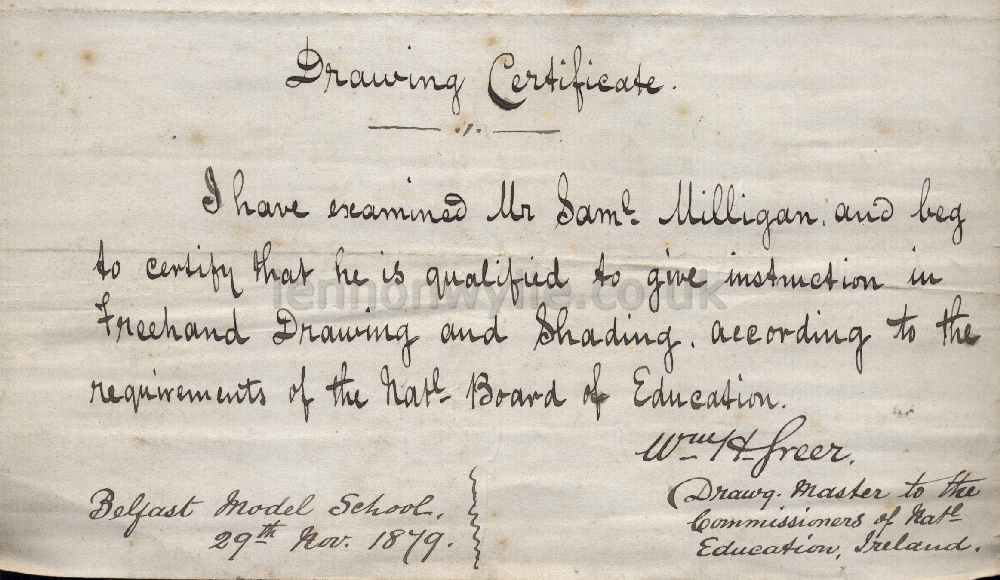 Drawing Certificate.
I have examined Mr Saml. Milligan, and beg
to certify that he is qualified to give instruction in
Freehand Drawing and Shading, according to the
requirements of the Natl. Board of Education.
Wm H Greer.
Belfast Model School,
29th Nov. 1879.
(Drawg. Master to the
Commissioners of Natl.
Education, Ireland.
lennonwylie.co.uk